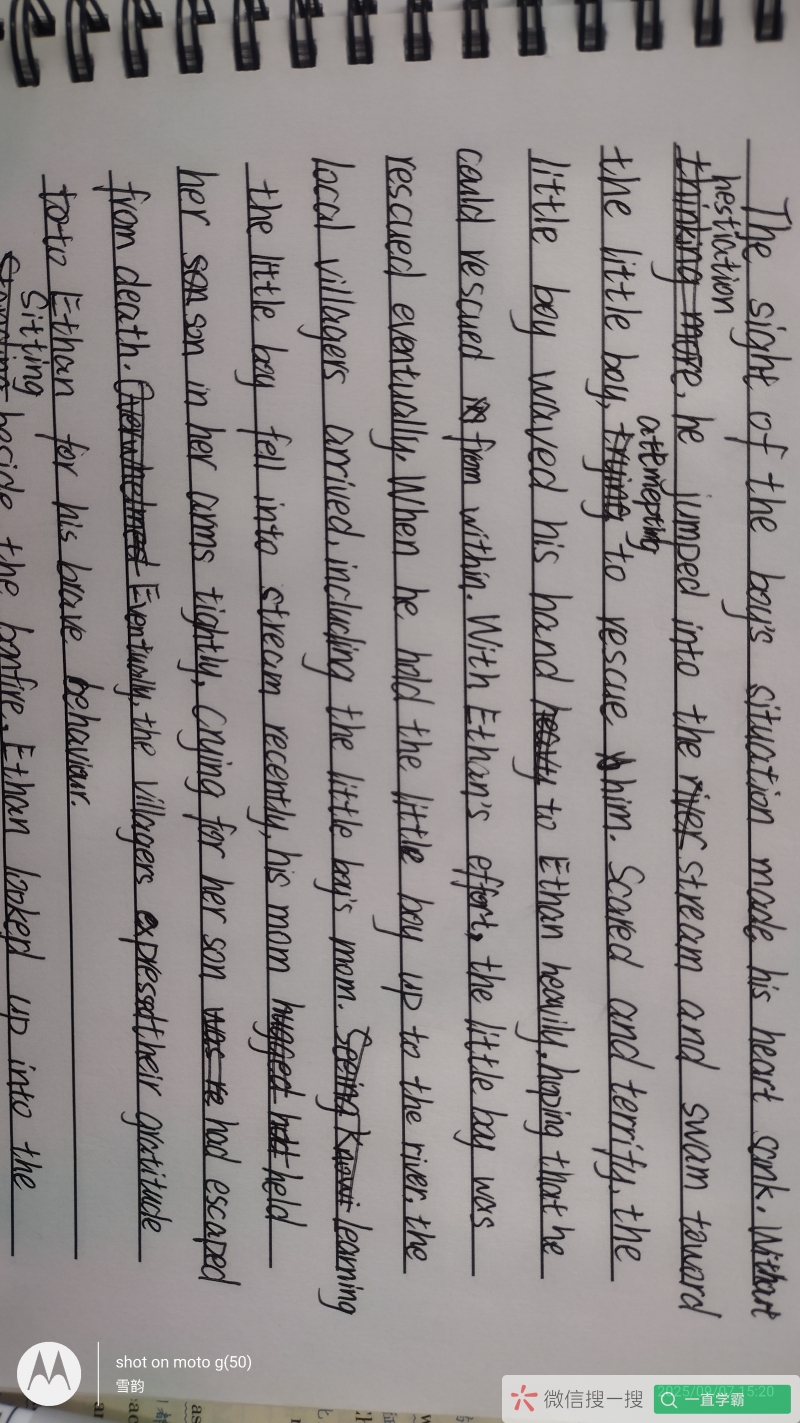 The sight of the boy's situation made his heart sank. Without
hestiation
thinking more, he jumped into the river stream and swam toward
attemepting
the little boy, trying to rescue him. Scared and terrify, the
little boy waved his hand heavy to Ethan heavily, hoping that he
could rescued from within. With Ethan's effort, the little boy was
rescued eventually. When he hold the little boy up to the river, the
local villagers arrived, including the little boy's mom. Seeing Known learning
the little boy fell into stream recently, his mom hugged held
her son son in her arms tightly, Crying for her son was re had escaped
from death. Overwhelmed Eventually, the villagers expressed their gratitude
to to Ethan for his brave behaviour.
Sitting
beside the bonfire, Ethan looked up into the
shot on moto g(50)
雪韵
微信搜一搜
一直学霸
2025/09/07 15:20